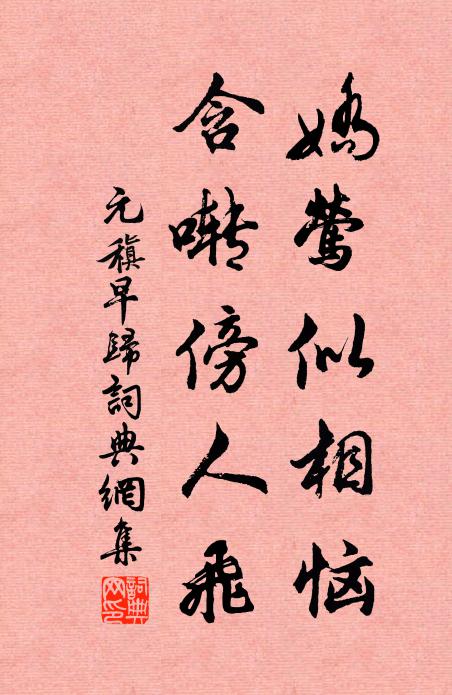 嬌鶯似相恼
含囀傍人飛
元稹早歸詞典網集
詞典网印